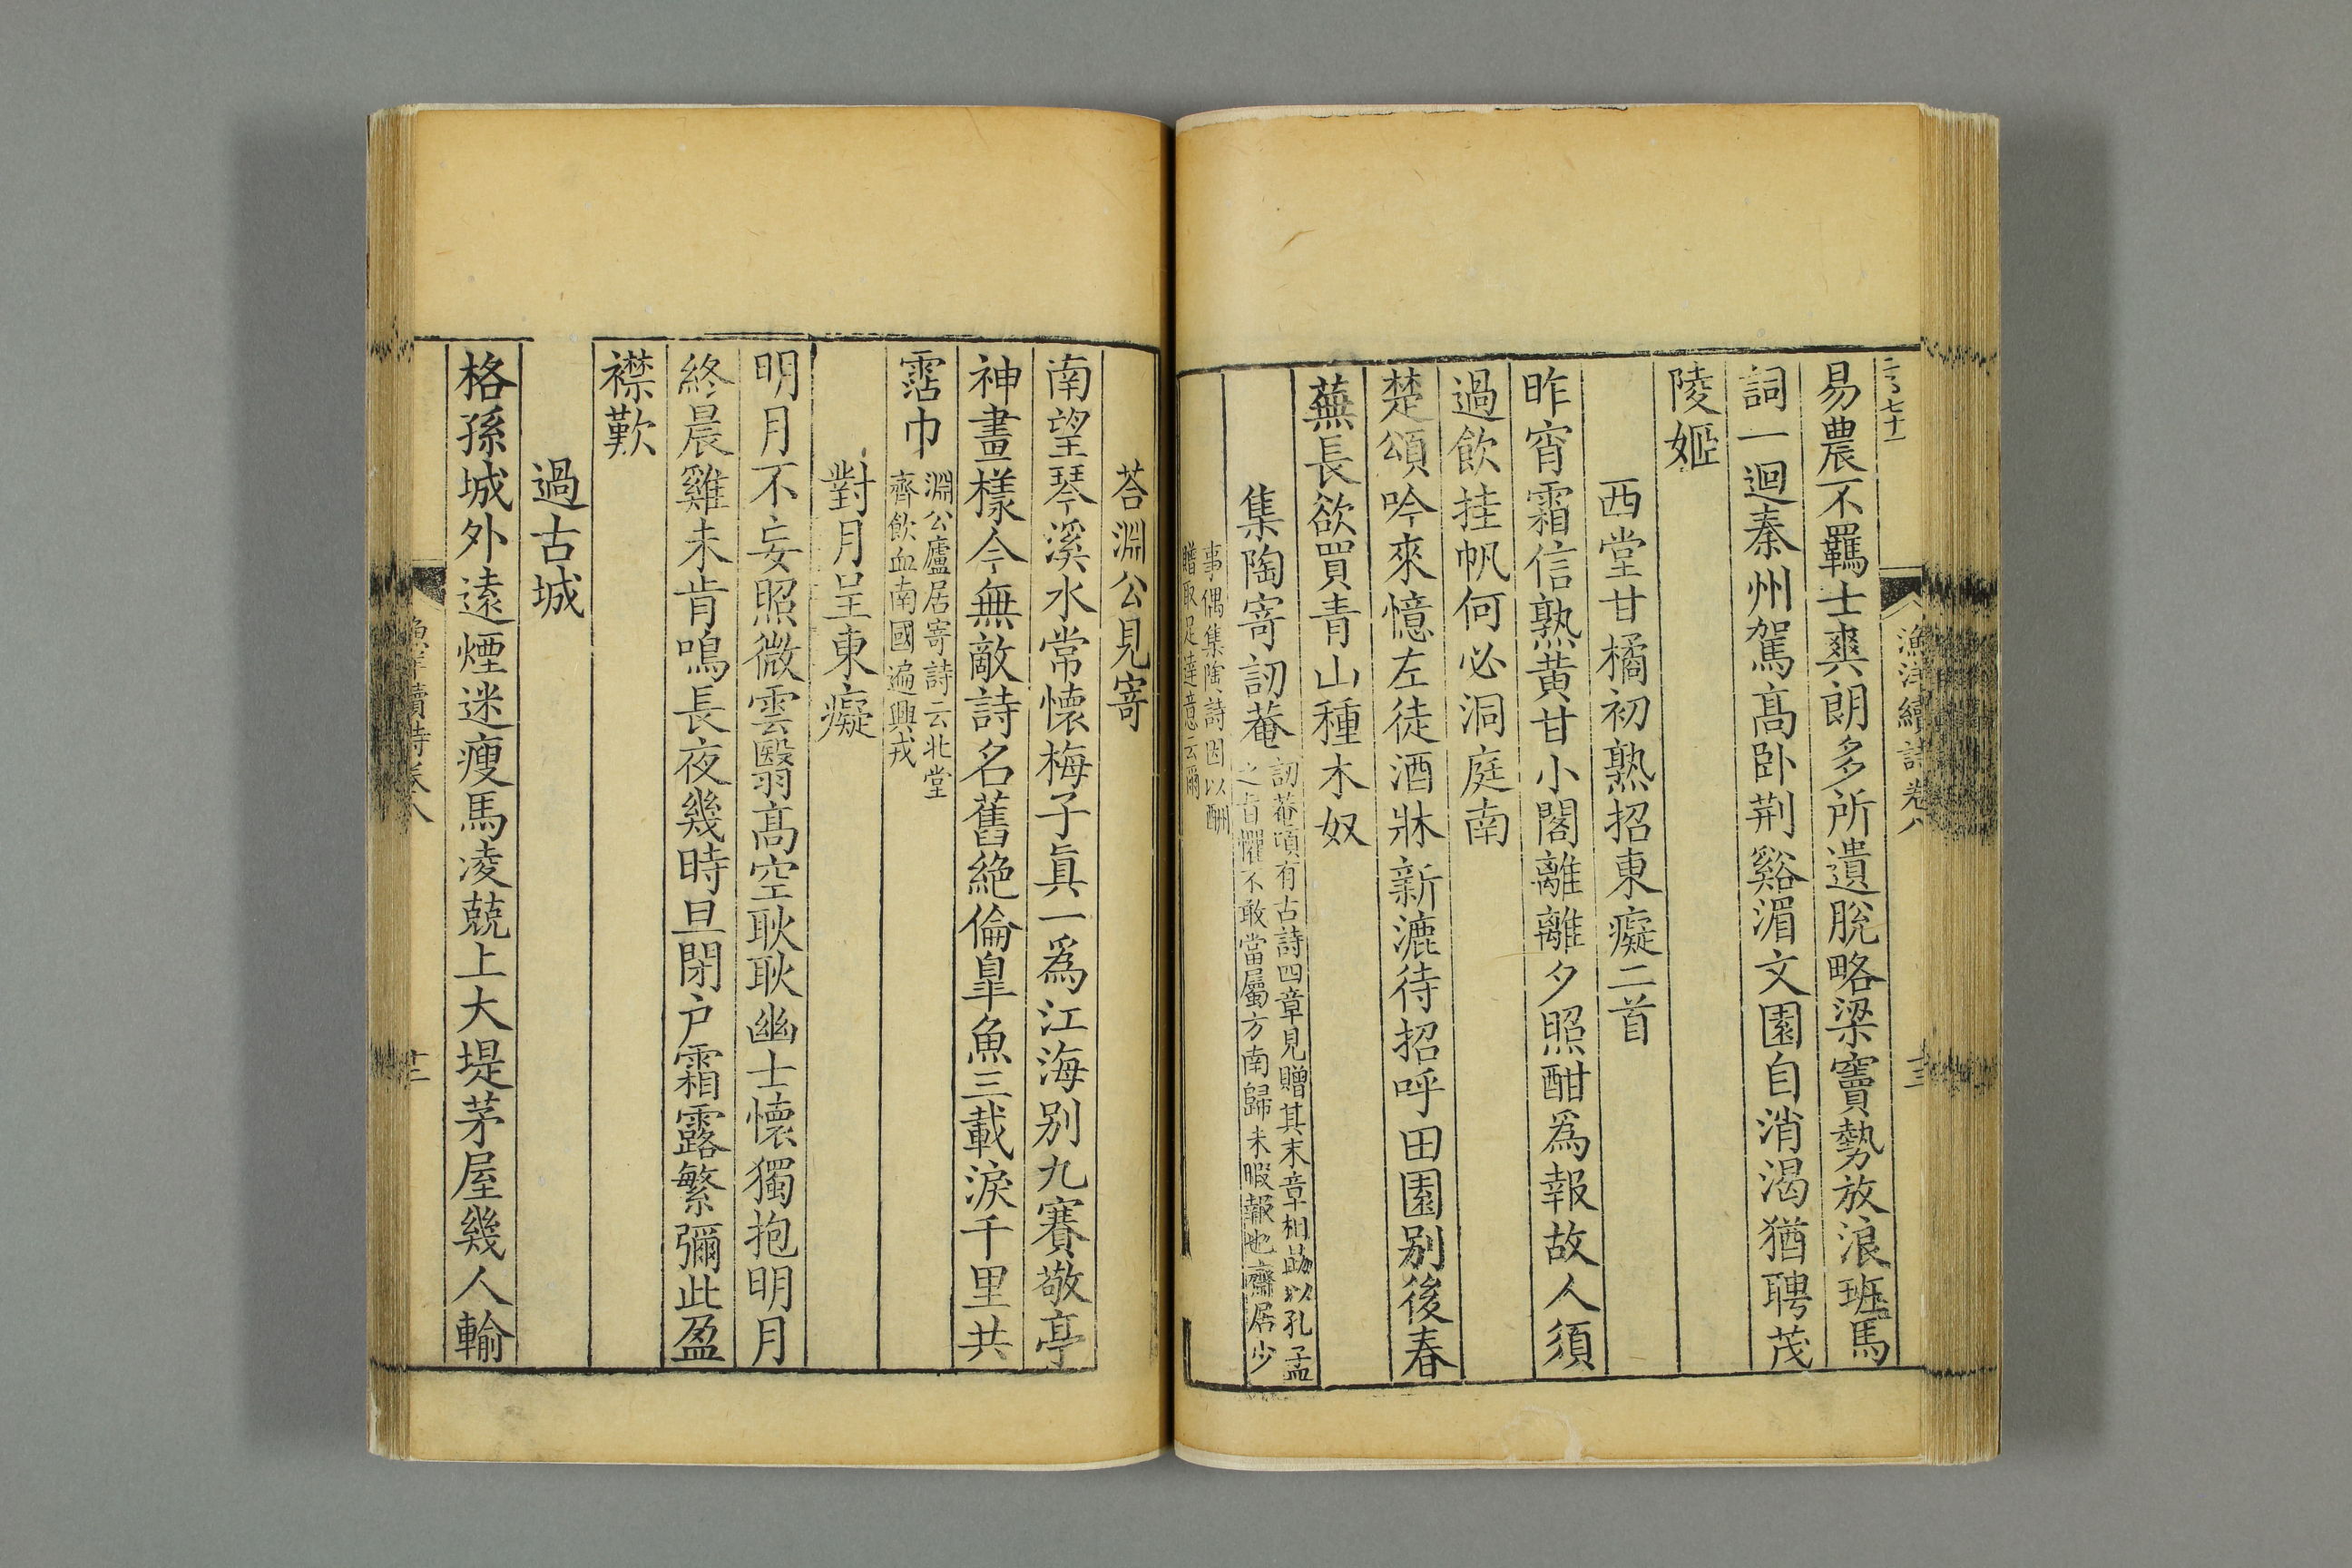 易農不羈士爽朗多所遺脫略梁竇勢放浪班馬
詞一迴秦州駕高卧荆谿湄文園自消渴猶聘茂
陵姬
西堂甘橘初熟招東癡二首
昨宵霜信熟黄甘小閣離離夕照酣爲報故人須
過飲挂帆何必洞庭南
楚頌吟來憶左徒酒牀新漉待招呼田園别後春
蕪長欲買青山種木奴
集陶寄訒菴
訒菴頃有古詩四章見贈其末章相勗以孔孟
之旨懼不敢當屬方南歸未暇報也齋居少
事偶集陶詩因以酬
贈取足達意云爾
漁洋續詩卷八
十三
荅淵公見寄
南望琴溪水常懷梅子眞一爲江海别九賽敬亭
神畫樣今無敵詩名舊絶倫臯魚三載淚千里共
霑巾
淵公廬居寄詩云北堂
齊飲血南國遍興戎
對月呈東癡
明月不妄照微雲翳高空耿耿幽士懷獨抱明月
終晨雞未肯鳴長夜幾時旦閉户霜露繁彌此盈
襟歎
過古城
格孫城外遠煙迷瘦馬凌兢上大堤茅屋幾人輸